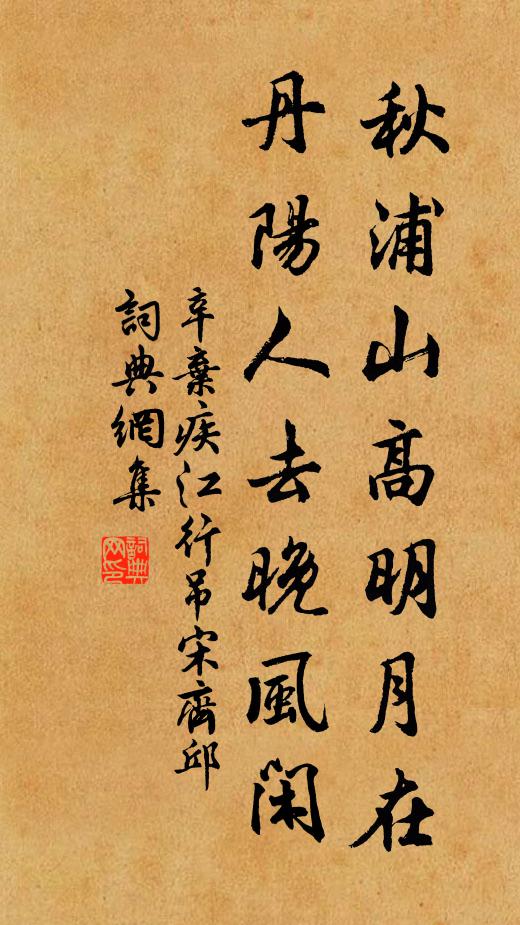 秋浦山高明月在
丹陽人去晚風閑
辛棄疾江行吊宋齊邱
詞典網集
詞典網印